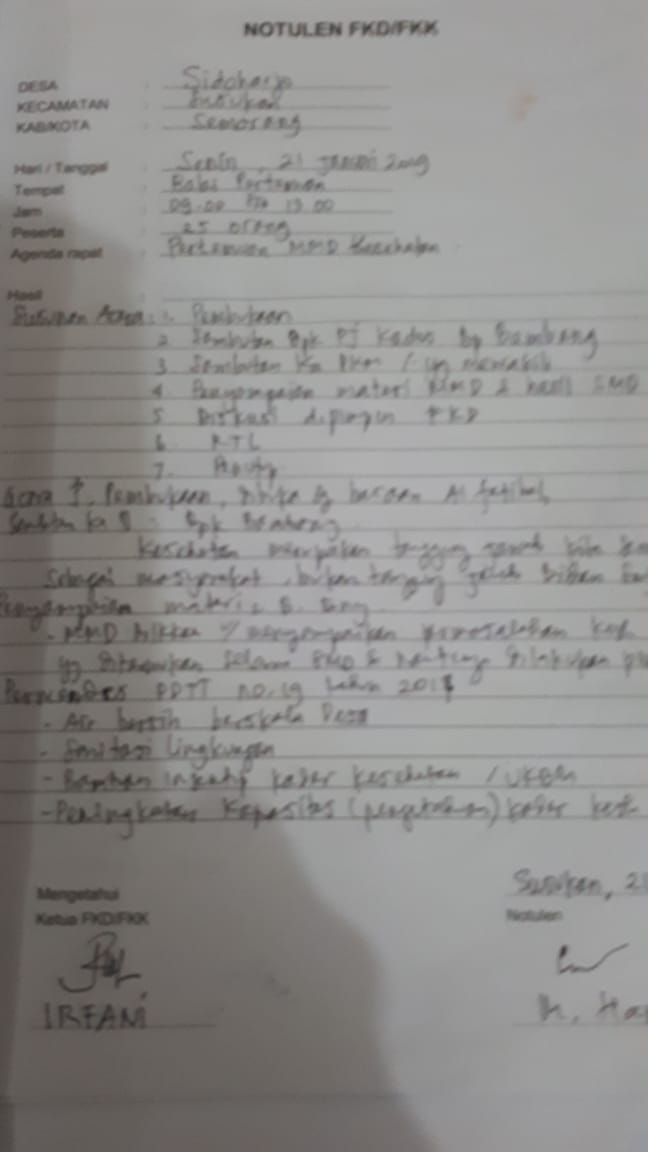 NOTULEN FKD/FKK
DESA : Sidoharjo
KECAMATAN : Susukan
KAB/KOTA : Semarang
Hari / Tanggal : Senin, 21 Januari 2019
Tempat : Balai Pertemuan
Jam : 09.00 13.00
Peserta : 25 orang
Agenda rapat : Pertemuan MMD Kesehatan
Hasil
Susunan Acara : 1. Pembukaan
2. Sambutan Bpk PJ Kades Bp Bambang
3. Sambutan Ka PKM / yg mewakili
4. Penyampaian materi MMD & hasil SMD
5. Diskusi dipimpin FKD
6. RTL
7. Penutup
Acara I. Pembukaan, dibuka dg bacaan Al fatihah
Sambutan : Bpk Bambang
Kesehatan merupakan tanggung jawab kita
Sebagai masyarakat, bukan tanggung jawab Bidan
Penyampaian materi :
- MMD menyampaikan permasalahan
yg ditemukan selama &
PDTT no. 19 tahun
- Air bersih berskala Desa
- Sanitasi lingkungan
- Bantuan insentif kader kesehatan / UKBM
- Peningkatan kapasitas (pengetahuan) kader
Susukan, 21
Mengetahui
Ketua FKD/FKK
Notulen
IRFANI